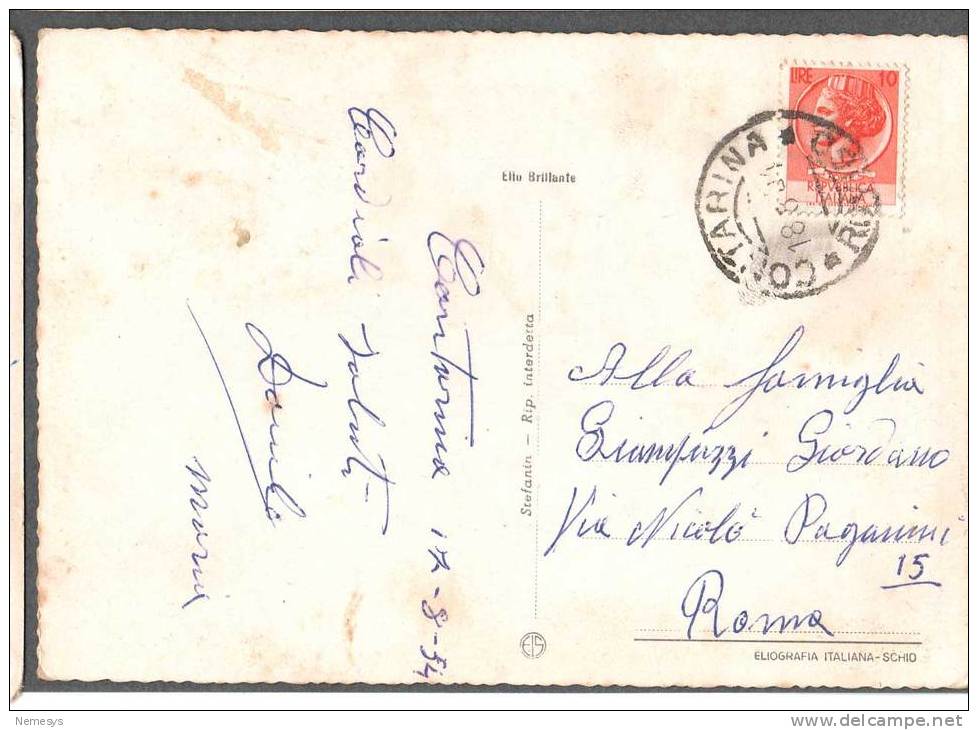 LIRE 10
REPVBBLICA
ITALIANA
COSTARINA
18 8
Elio Brillante
Cordiali saluti
Danilo
Maria
17-8-54
Stefanin - Rip. interdetta
Alla famiglia
Giampuzzi Giordano
Via Nicolò Paganini
15
Roma
EIS
ELIOGRAFIA ITALIANA-SCHIO
Nemesys
www.delcampe.net